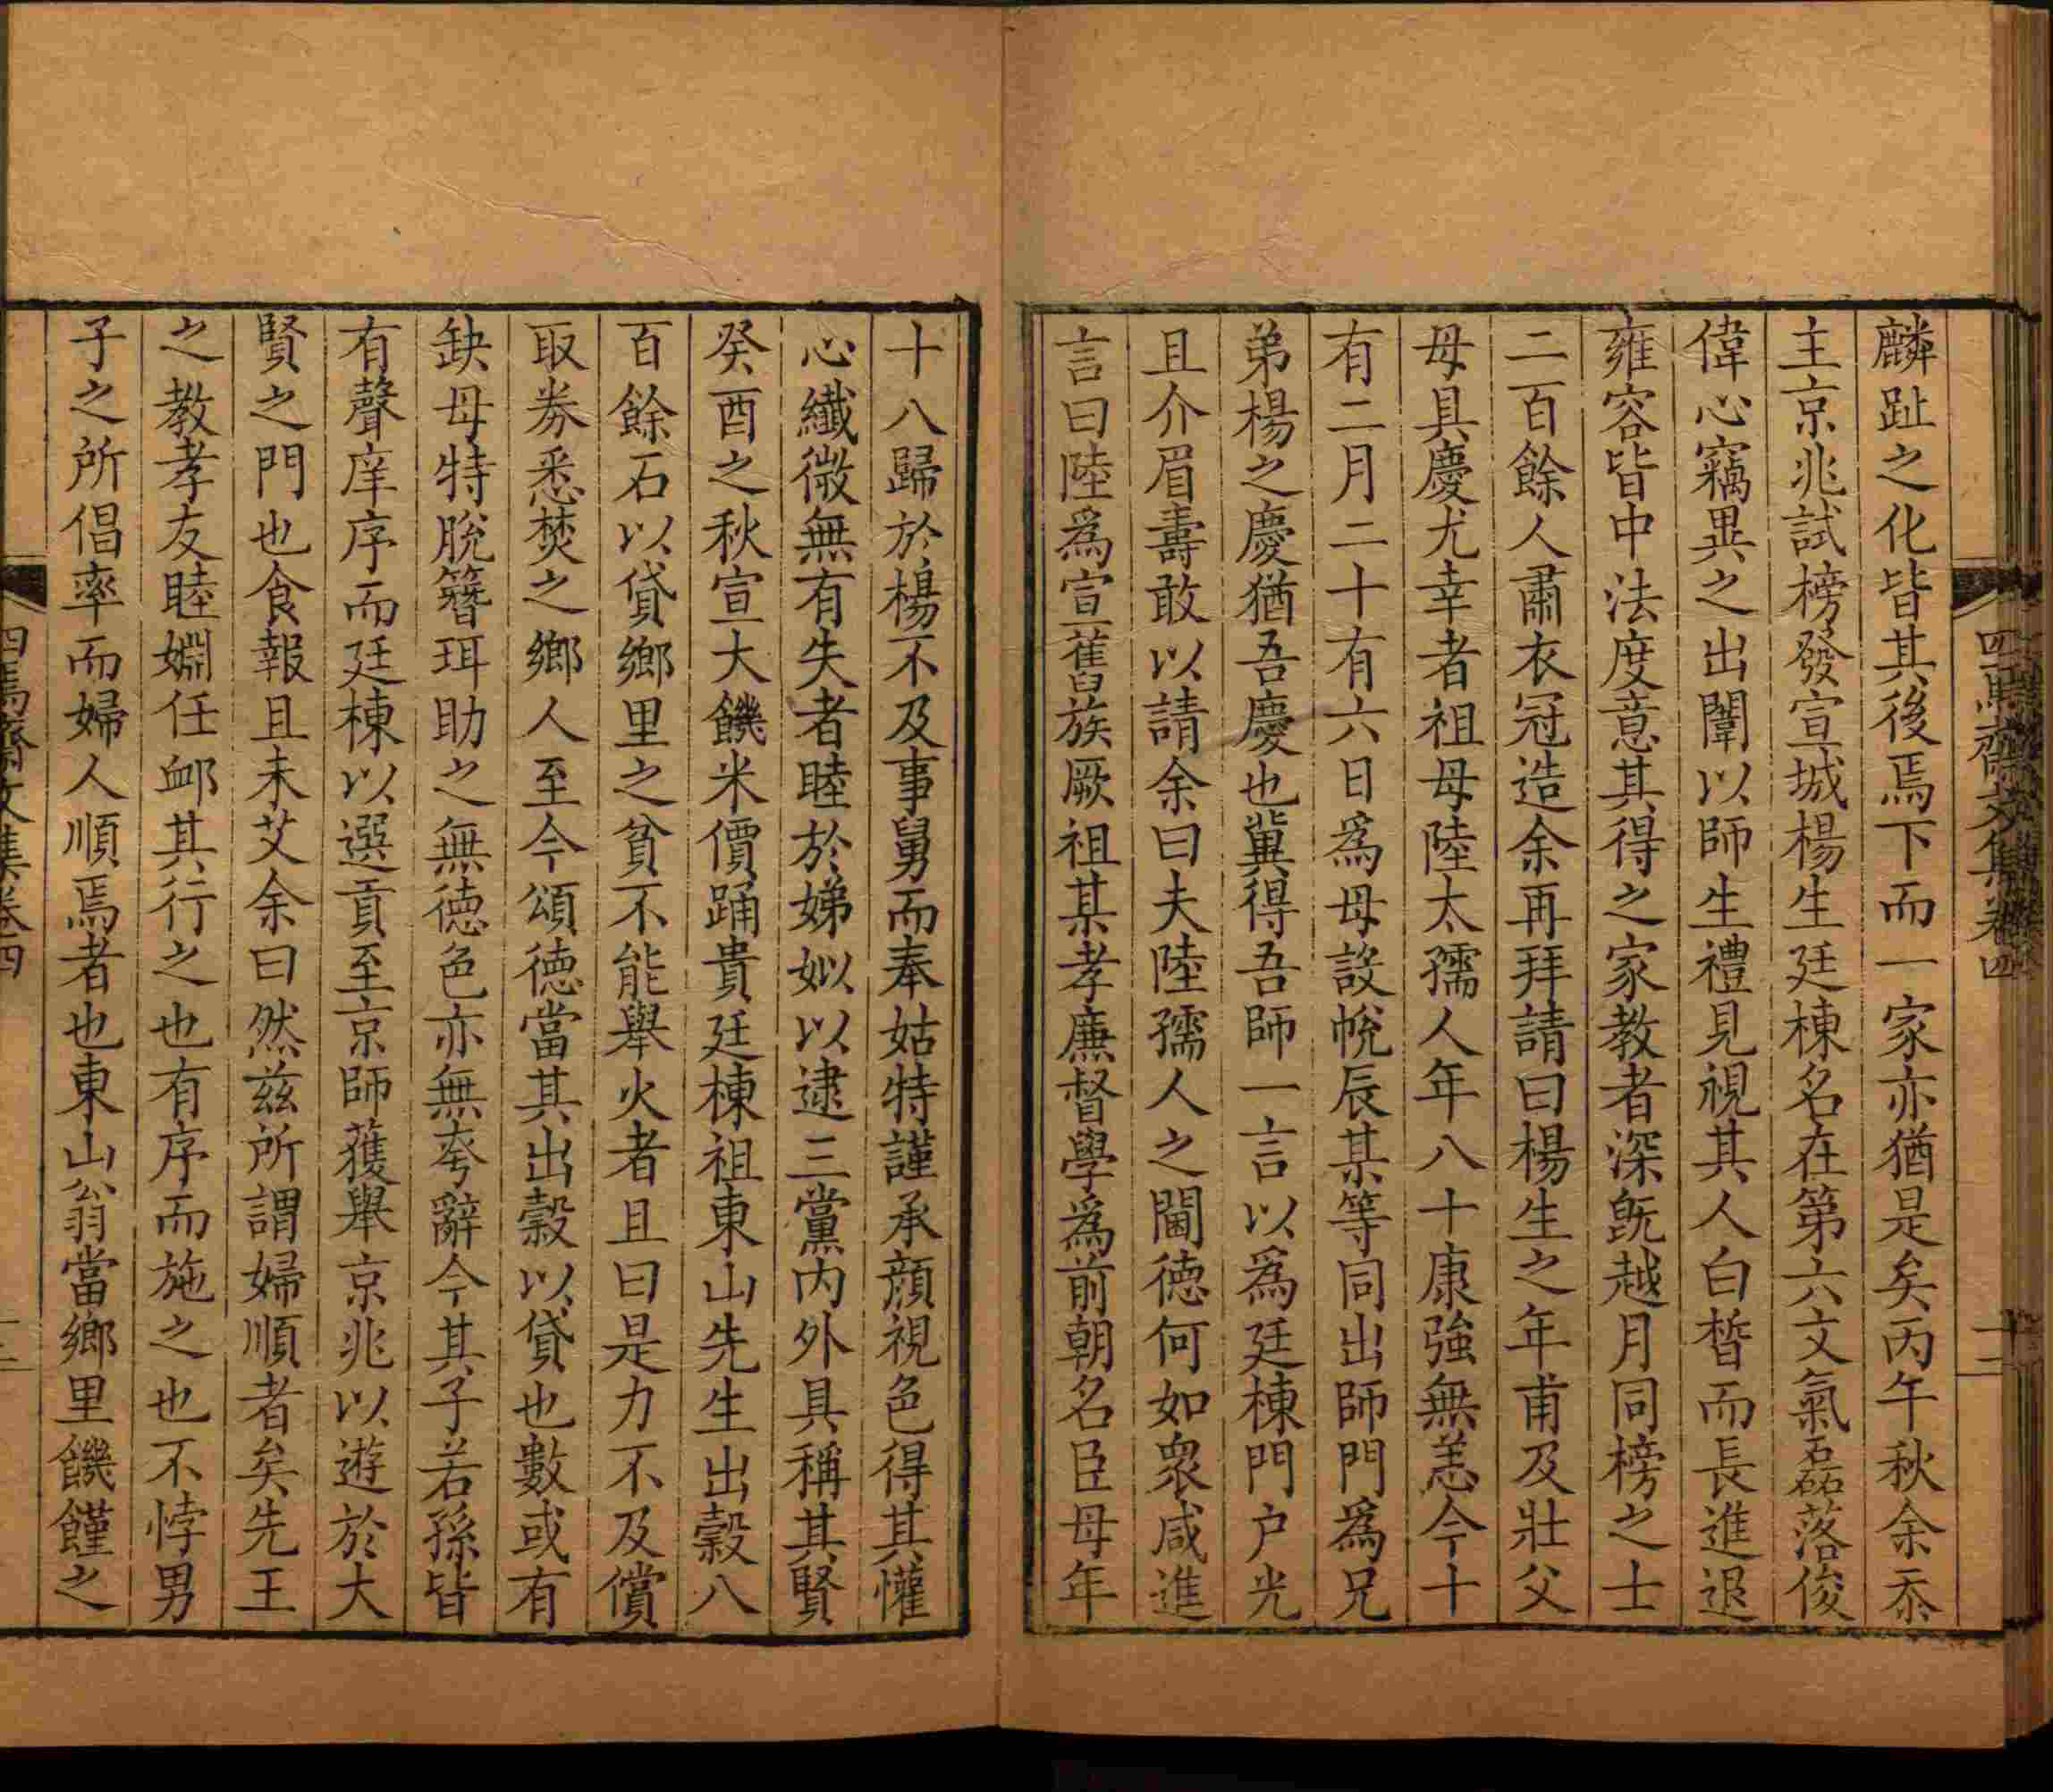 四焉齋文集卷四
十二
麟趾之化皆其後焉下而一家亦猶是矣丙午秋余忝
主京兆試榜發宣城楊生廷棟名在第六文氣磊落俊
偉心竊異之出闈以師生禮見視其人白皙而長進退
雍容皆中法度意其得之家教者深旣越月同榜之士
二百餘人肅衣冠造余再拜請曰楊生之年甫及壯父
母具慶尤幸者祖母陸太孺人年八十康強無恙今十
有二月二十有六日爲母設帨辰某等同出師門爲兄
弟楊之慶猶吾慶也冀得吾師一言以爲廷棟門户光
且介眉壽敢以請余曰夫陸孺人之閫德何如衆咸進
言曰陸爲宣舊族厥祖某孝廉督學爲前朝名臣母年
十八歸於楊不及事舅而奉姑特謹承顔視色得其懽
心纖微無有失者睦於娣姒以逮三黨内外具稱其賢
癸酉之秋宣大饑米價踊貴廷棟祖東山先生出榖八
百餘石以貸鄉里之貧不能舉火者且曰是力不及償
取券悉焚之鄉人至今頌德當其出榖以貸也數或有
缺母特脫簪珥助之無德色亦無夸辭今其子若孫皆
有聲庠序而廷棟以選貢至京師獲舉京兆以遊於大
賢之門也食報且未艾余曰然兹所謂婦順者矣先王
之教孝友睦婣任卹其行之也有序而施之也不悖男
子之所倡率而婦人順焉者也東山翁當鄉里饑饉之
四焉齋文集卷四